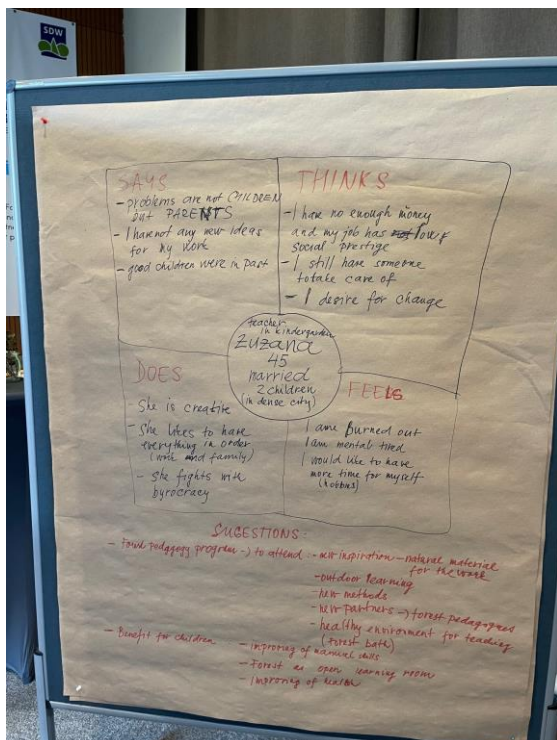 SDW
SAYS
- problems are not CHILDREN
but PARENTS
- I have not any new ideas
for my work
- good children were in past
THINKS
- I have no enough money
and my job has lower
social prestige
- I still have someone
totake care of
- I desire for change
teacher
in kindergarden
Zuzana
45
married
2 children
(in dense city)
DOES
- She is creative
- She likes to have
everything in order
(work and family)
- She fights with
byrocracy
FEELS
I am Burned out
I am mental tired
I would like to have
more time for myself
(hobbies)
SUGESTIONS:
- Forest pedagogy program -> to attend :- new inspiration - natural material
for the work
- outdoor learning
- new methods
- new partners -> forest pedagogues
- healthy environment for teaching
(forest bath)
- Benefit for children
- improving of manual skills
- Forest as open learning room
- Improving of health